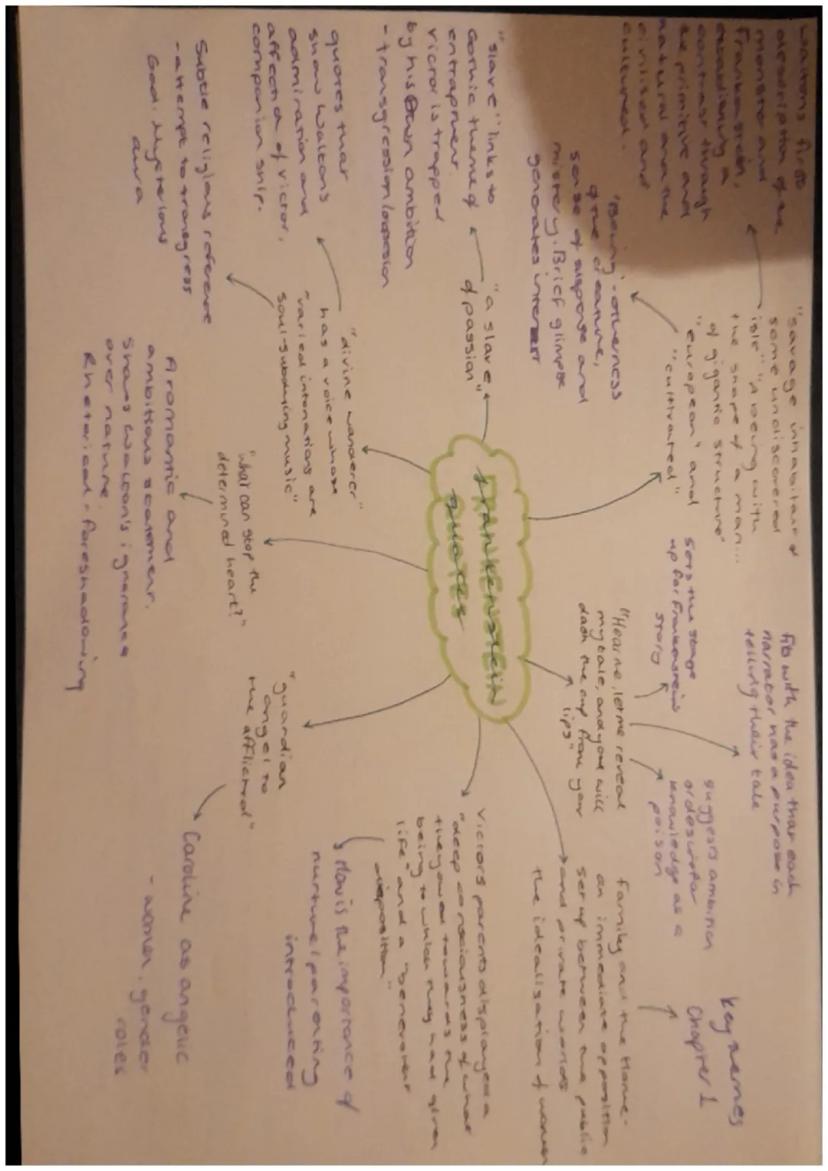 FRANKENSTEIN
QUOTES
"savage inhabitant of
some undiscovered
isle" "A being with
the shape of a man...
of gigantic structure"
"european" and
"cultivated"
Waltons first
description of the
monster and
Frankenstein,
establishing a
contrast through
the primitive and
natural and the
civilised and
cultured.
'Being' - otherness
of the creature,
sense of suspense and
mistery. Brief glimpse
generates interest
"a slave
of passion"
"slave" links to
Gothic theme of
entrapment.
victor is trapped
by his own ambition
- transgression/obsession
"divine wanderer"
has a voice whose
"varied intonations are
soul-subduing music"
quotes that
show Waltons
admiration and
affection of victor,
companionship.
Subtle religious reference
- attempt to transgress
God. Mysterious
aura
"what can stop the
determined heart?"
A romantic and
ambitious statement.
Shows Walton's ignorance
over nature.
Rhetorical - foreshadowing
"guardian
angel to
the afflicted"
Caroline as angelic
- women, gender
roles
Victors parents displayed a
"deep consciousness of what
they owed towards the
being to which they had given
life" and a "benevolent
disposition"
How is the importance of
nurture/parenting
introduced
"Hear me, let me reveal
my tale, and you will
dash the cup from your
lips"
Sets the stage
up for Frankensteins
story
fits with the idea that each
narrator has a purpose in
telling their tale
suggests ambition
or desire for
knowledge as a
poison
Family and the Home -
an immediate opposition
set up between the public
and private worlds
the idealisation of women
key themes
Chapter 1